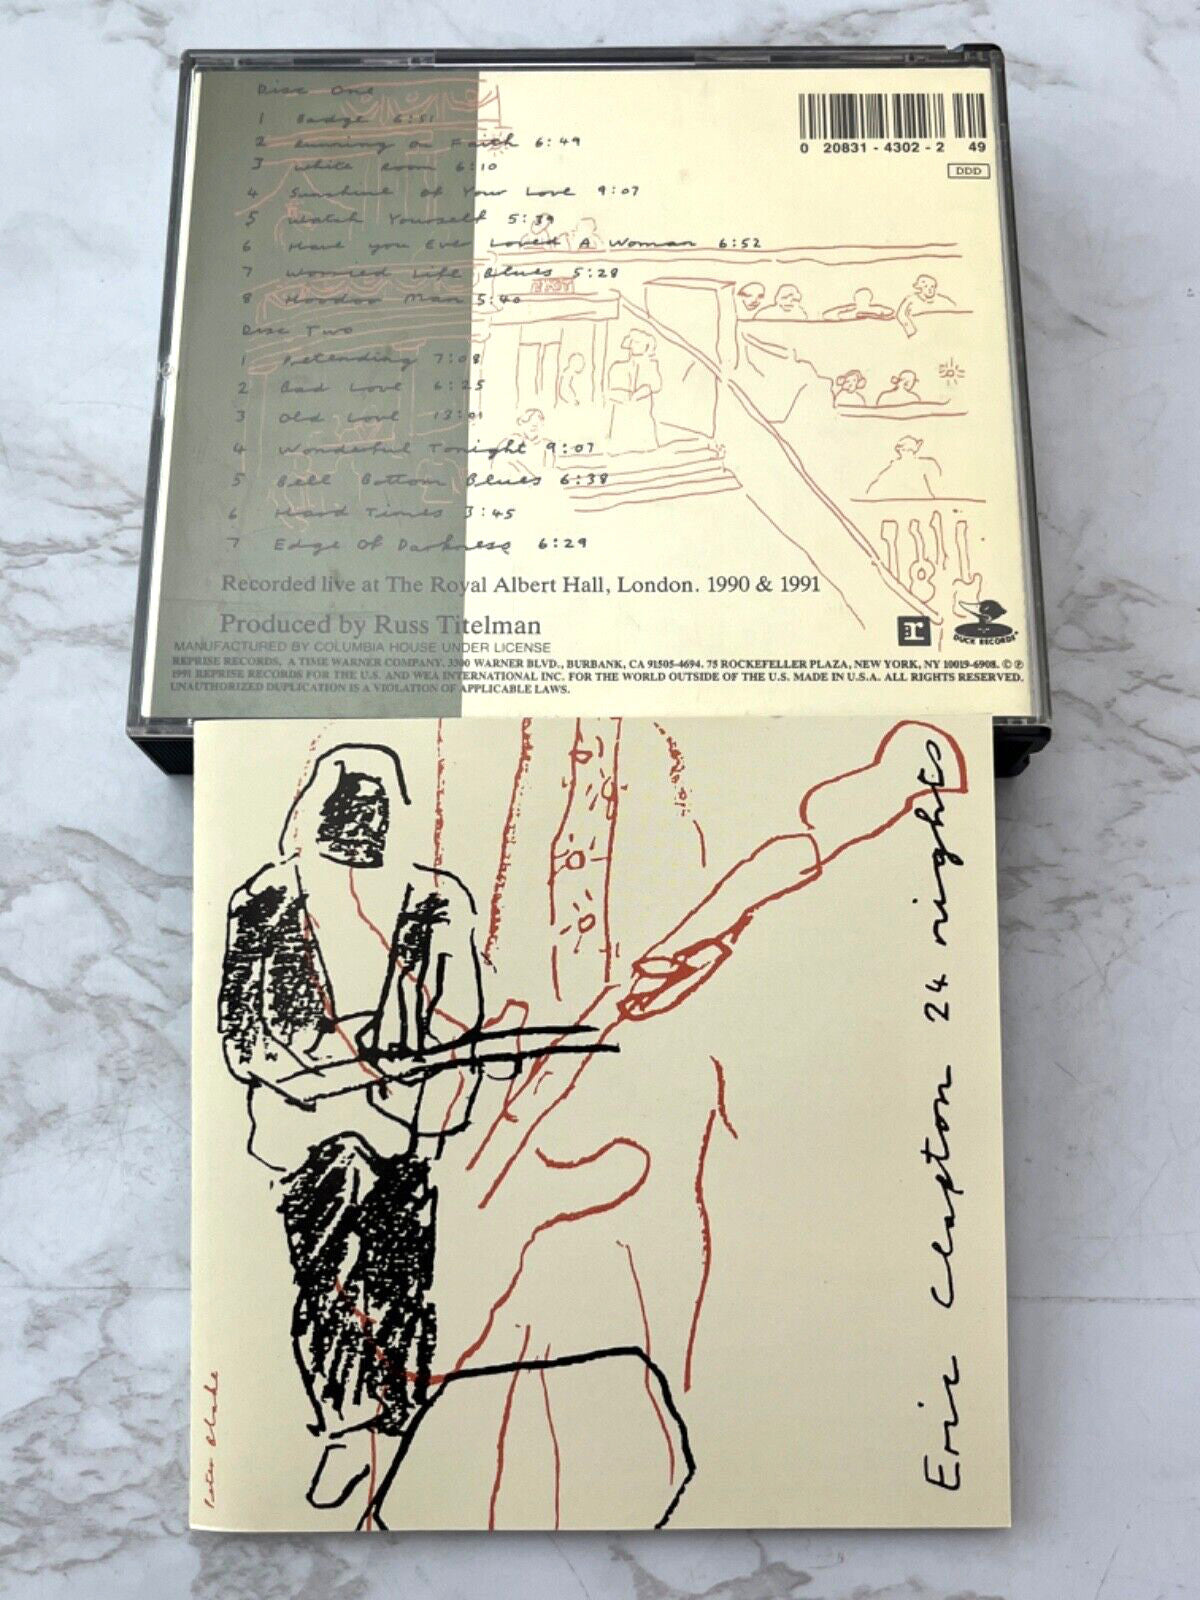 Disc One
1 Badge 6:51
2 Running on Faith 6:49
3 White Room 6:10
4 Sunshine of Your Love 9:07
5 Watch Yourself 5:39
6 Have you Ever Loved A Woman 6:52
7 Worried Life Blues 5:28
8 Hoodoo Man 5:40
Disc Two
1 Pretending 7:08
2 Bad Love 6:25
3 Old Love 13:01
4 Wonderful Tonight 9:07
5 Bell Bottom Blues 6:38
6 Hard Times 3:45
7 Edge Of Darkness 6:29
0 20831 - 4302 - 2 49
DDD
Recorded live at The Royal Albert Hall, London. 1990 & 1991
Produced by Russ Titelman
DUCK RECORDS
MANUFACTURED BY COLUMBIA HOUSE UNDER LICENSE
REPRISE RECORDS, A TIME WARNER COMPANY, 3300 WARNER BLVD., BURBANK, CA 91505-4694. 75 ROCKEFELLER PLAZA, NEW YORK, NY 10019-6908. © ℗
1991 REPRISE RECORDS FOR THE U.S. AND WEA INTERNATIONAL INC. FOR THE WORLD OUTSIDE OF THE U.S. MADE IN U.S.A. ALL RIGHTS RESERVED.
UNAUTHORIZED DUPLICATION IS A VIOLATION OF APPLICABLE LAWS.
Eric Clapton 24 nights
Peter Blake